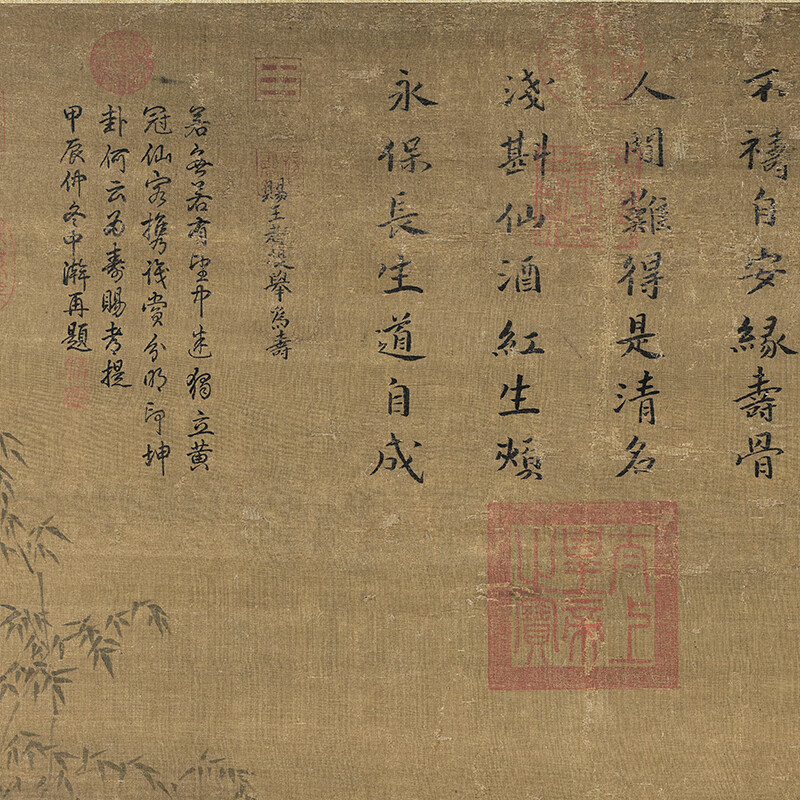 不禱自安緣壽骨
人間難得是清名
淺斟仙酒紅生頰
永保長生道自成
賜王都提舉為壽
若無若有望中迷獨立黃
冠仙客携識賞分明印坤
卦何云為壽賜都提
甲辰仲冬中澣再題
太上
皇帝
之寶